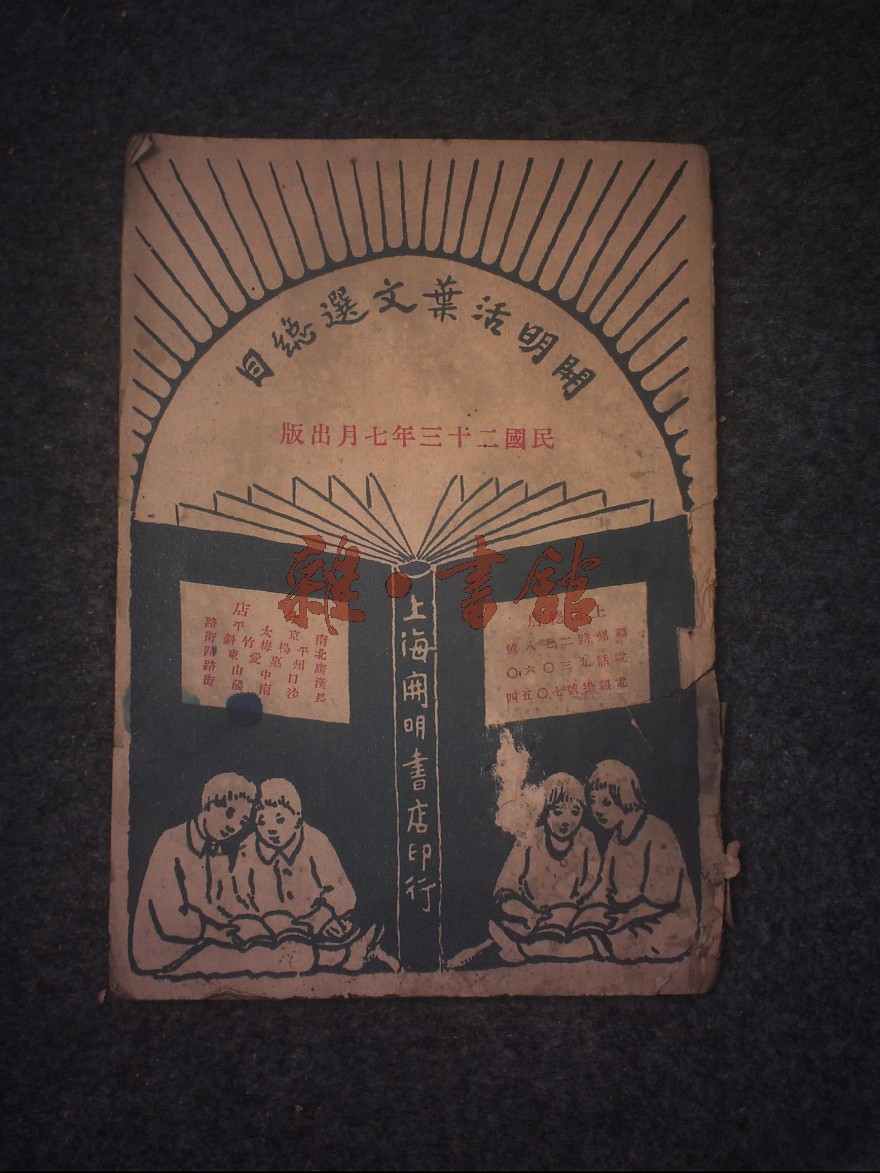 開明活葉文選總目
民國二十三年七月出版
雜·書館
上 店
福州路二七八號
電話九三〇六〇
電報掛號七〇五四
店
南京太平路
北平楊梅竹斜街
廣州惠愛東路
漢口中山路
長沙南 街
上海開明書店印行